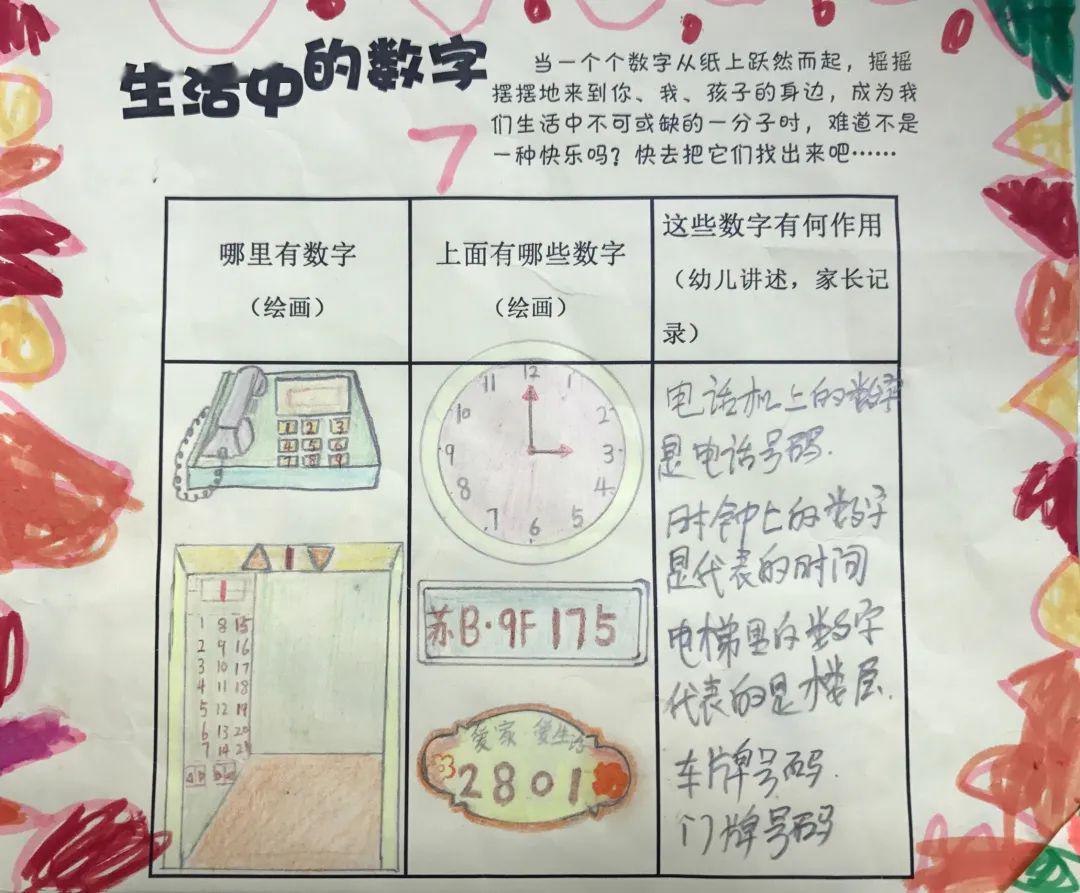 生活中的数字
当一个个数字从纸上跃然而起，摇摇
摆摆地来到你、我、孩子的身边，成为我
们生活中不可或缺的一分子时，难道不是
一种快乐吗？快去把它们找出来吧……
7
哪里有数字
（绘画）
上面有哪些数字
（绘画）
这些数字有何作用
（幼儿讲述，家长记
录）
1 2 3
4 5 6
7 8 9
1
1
1 8 15
2 9 16
3 10 17
4 11 18
5 12 19
6 13 20
7 14 21
12
11 1
10 2
9 3
8 4
7 5
6
苏B·9F175
爱家 爱生活
2801
电话机上的数字
是电话号码.
时钟上的数字
是代表的时间
电梯里的数字
代表的是楼层.
车牌号码.
门牌号码